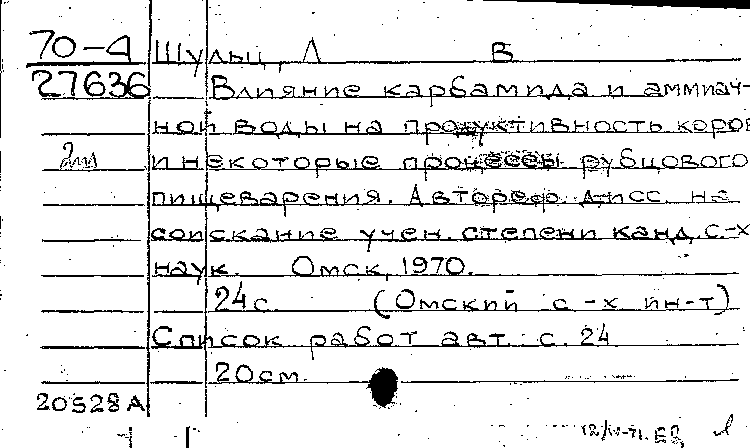 70-4 Шульц, Л В
27636 Влияние карбамида и аммиач-
ной воды на продуктивность коров
и некоторые процессы рубцового
пищеварения. Автореф. дисс. на
соискание учен. степени канд. с-х
наук. Омск, 1970.
24 с. (Омский с-х ин-т)
Список работ авт. с. 24
20 см.
20528А